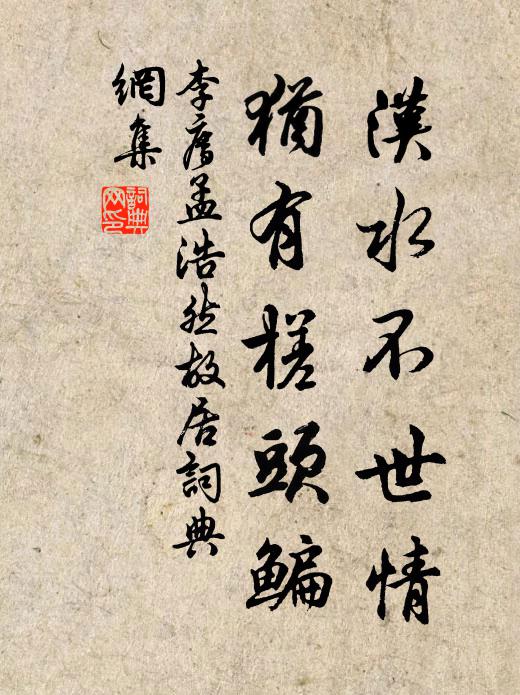 漢水不世情
猶有槎頭鳊
李廌孟浩然故居詞典
網集
詞典
网印